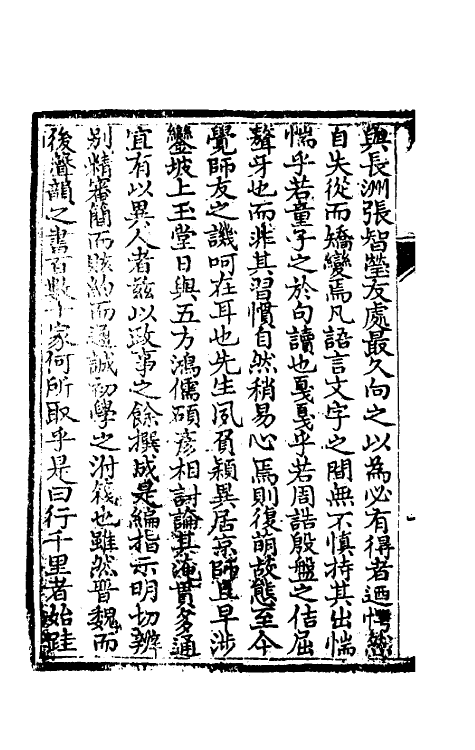 與長洲張智瑩友處最久向之以為必有得者迺愕然
自失從而矯變焉凡語言文字之間無不慎持其出惴
惴乎若童子之於句讀也戛戛乎若周誥殷盤之佶屈
聱牙也而非其習慣自然稍易心焉則復萌故態至今
覺師友之譏呵在耳也先生夙負穎異居京師且早涉
鑾坡上玉堂日與五方鴻儒碩彥相討論其淹貫多通
宜有以異人者茲以致事之餘撰成是編指示明切辨
別精審簡而賅約而通誠初學之津筏也雖然晉魏而
後聲韻之書百數十家何所取乎是曰行千里者始跬